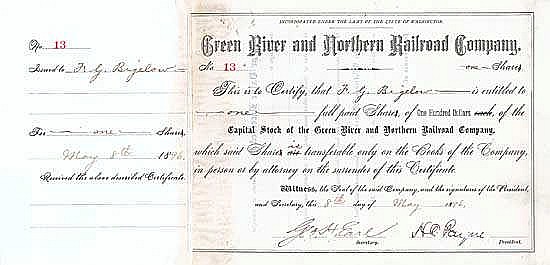 No. 13
Issued to F. G. Bigelow
For one Shares.
May 8th 1896
Received the above described Certificate.
INCORPORATED UNDER THE LAWS OF THE STATE OF WASHINGTON.
Green River and Northern Railroad Company.
No. 13 one Shares
This is to Certify, that F. G. Bigelow is entitled to
one full paid Shares, of One Hundred Dollars each, of the
Capital Stock of the Green River and Northern Railroad Company.
which said Shares is transferable only on the Books of the Company,
in person or by attorney on the surrender of this Certificate.
Witness, the Seal of the said Company, and the signatures of the President,
and Secretary, this 8th day of May 1896.
Geo H Earl H. C. Payne
Secretary. President.